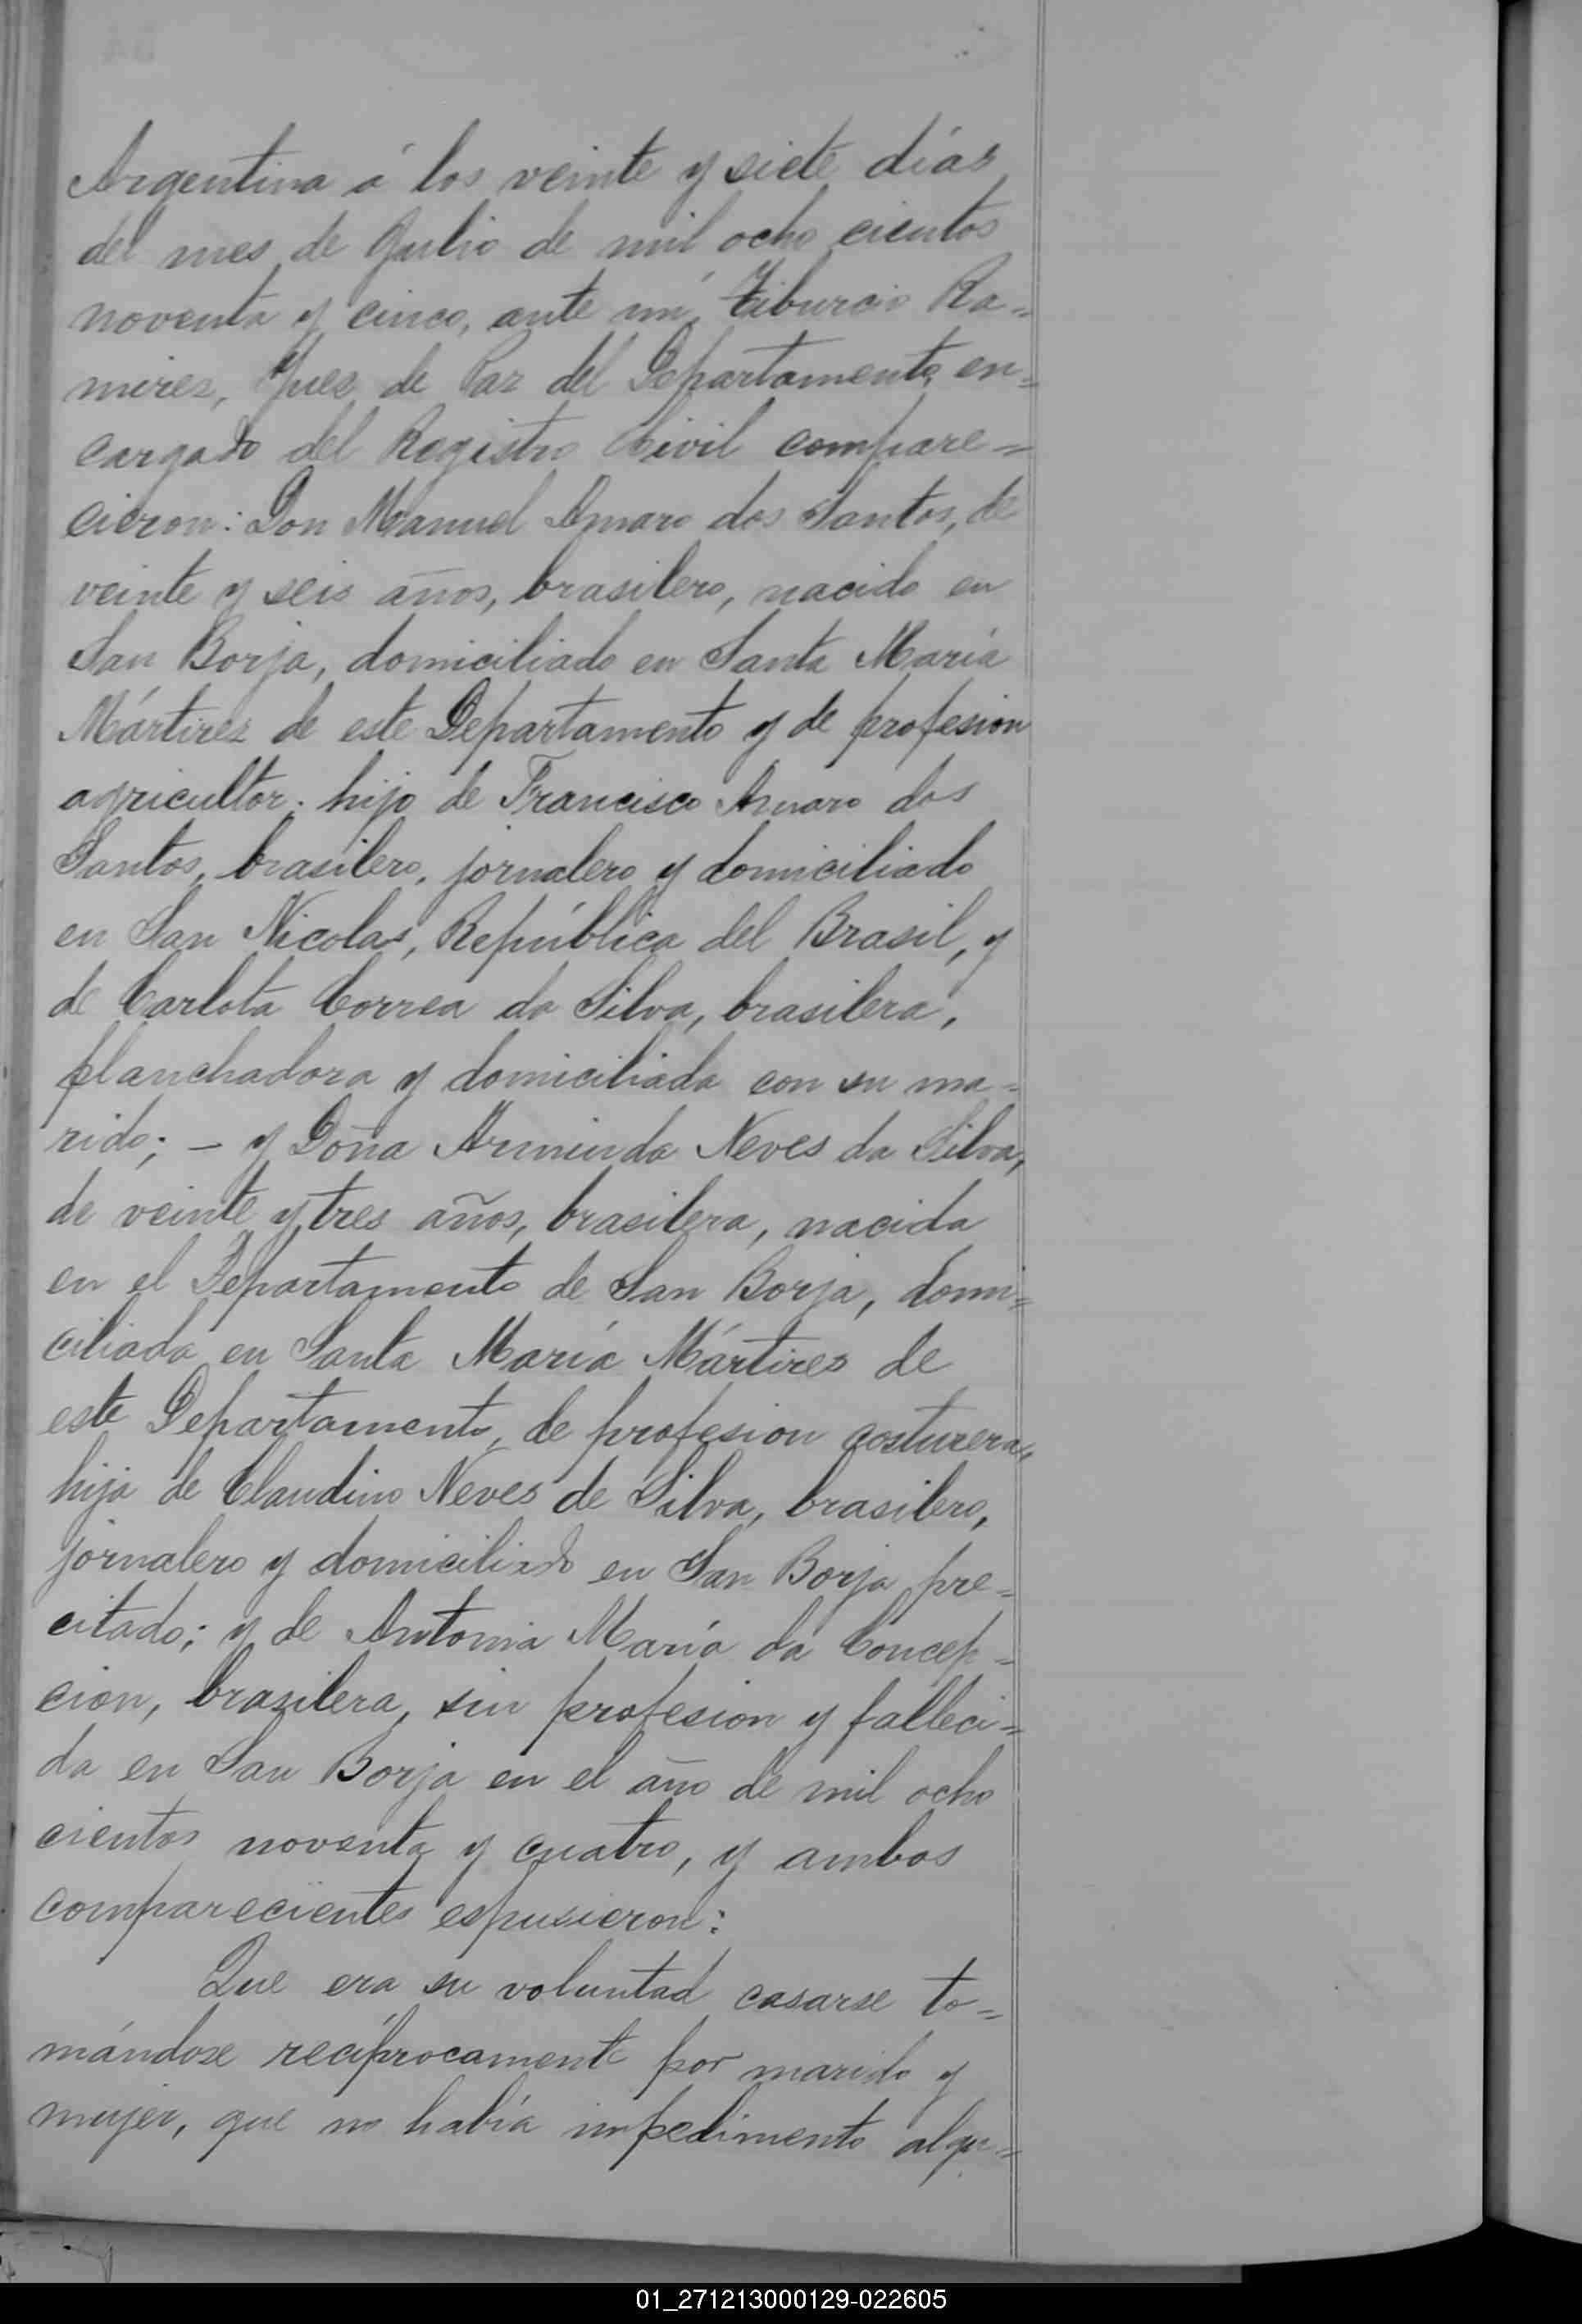 Argentina á los veinte y siete días
del mes de Julio de mil ocho cientos
noventa y cinco, ante mí, Tiburcio Ra=
mires, Juez de Paz del Departamento, en=
cargado del Registro Civil compare=
cieron: Don Manuel Amaro dos Santos, de
veinte y seis años, brasilero, nacido en
San Borja, domiciliado en Santa María
Mártires de este Departamento y de profesion
agricultor; hijo de Francisco Amaro dos
Santos, brasilero, jornalero y domiciliado
en San Nicolas, República del Brasil, y
de Carlota Correa da Silva, brasilera,
planchadora y domiciliada con su ma=
rido; – y Doña Arminda Neves da Silva,
de veinte y tres años, brasilera, nacida
en el Departamento de San Borja, domi=
ciliada en Santa María Mártires de
este Departamento, de profesion costurera,
hija de Claudino Neves de Silva, brasilero,
jornalero y domiciliado en San Borja pre=
citado; y de Antonia María da Concep=
cion, brasilera, sin profesion y falleci=
da en San Borja en el año de mil ocho
cientos noventa y cuatro, y ambos
comparecientes espusieron:
Que era su voluntad casarse to=
mándose recíprocamente por marido y
mujer, que no había impedimento algu=
01_271213000129-022605